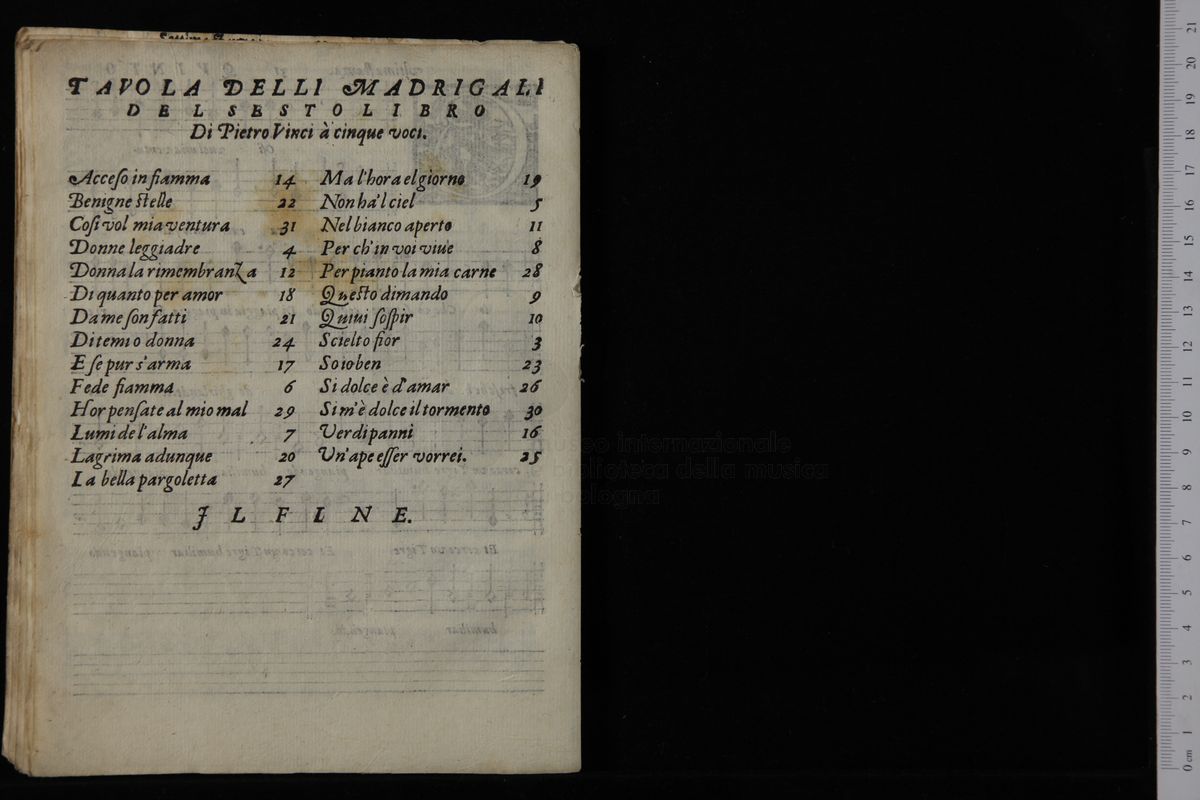 TAVOLA DELLI MADRIGALI
DEL SESTO LIBRO
Di Pietro Vinci à cinque voci.
Acceſo in fiamma 14
Benigne ſtelle 22
Coſi vol mia ventura 31
Donne leggiadre 4
Donna la rimembranza 12
Di quanto per amor 18
Da me ſon fatti 21
Ditemi o donna 24
E ſe pur s'arma 17
Fede fiamma 6
Hor penſate al mio mal 29
Lumi de l'alma 7
Lagrima adunque 20
La bella pargoletta 27
Ma l'hora el giorno 19
Non ha'l ciel 5
Nel bianco aperto 11
Per ch'in voi viue 8
Per pianto la mia carne 28
Queſto dimando 9
Quiui ſoſpir 10
Scielto fior 3
So io ben 23
Si dolce è d'amar 26
Si m'è dolce il tormento 30
Verdi panni 16
Un'ape eſſer vorrei. 25
IL FINE.
internazionale
biblioteca della musica
bologna
0 cm 1 2 3 4 5 6 7 8 9 10 11 12 13 14 15 16 17 18 19 20 21